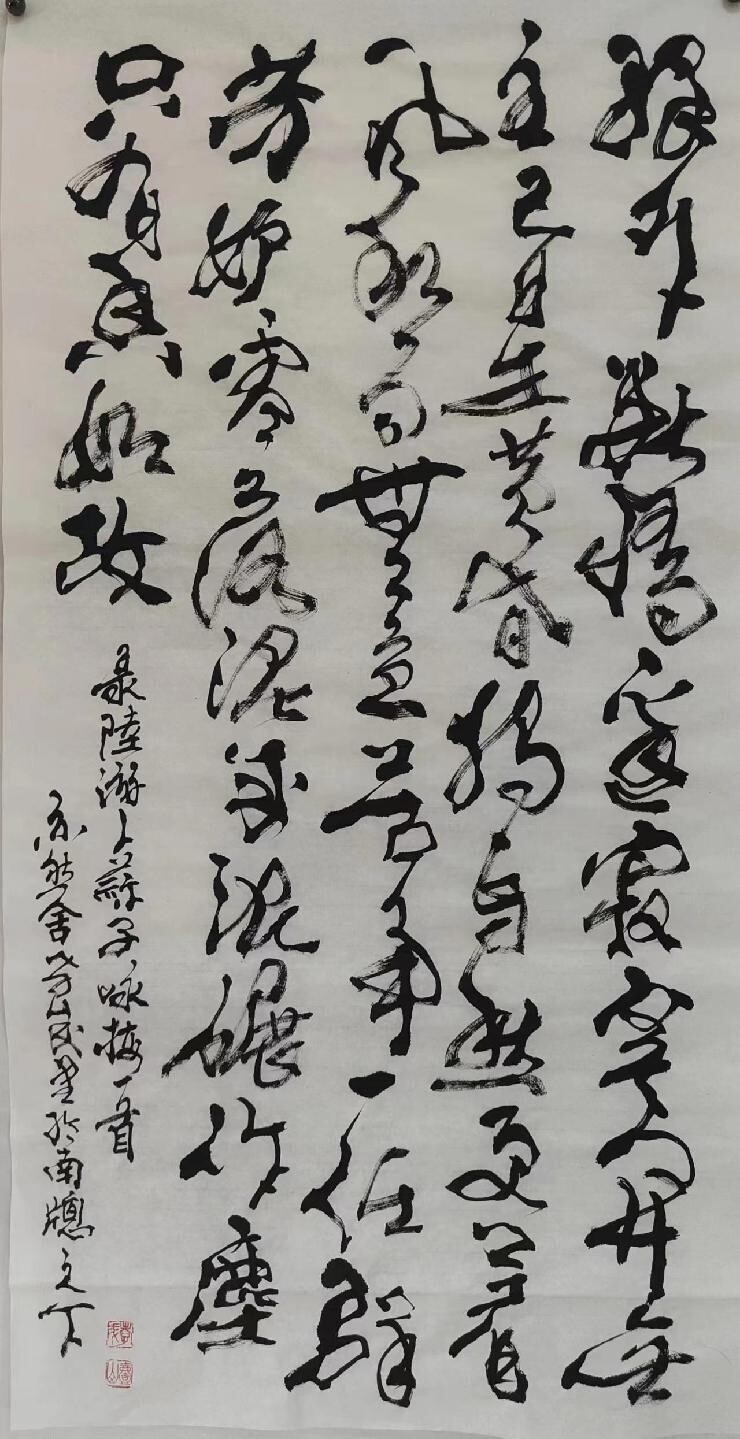 驛外斷橋邊寂寞開無
主已是黄昏獨自愁更著
風和雨無意苦争一任群
芳妒零落泥成泥碾作塵
只有香如故
录陸游卜算子咏梅一首
亦然舍山民書於南牕之下